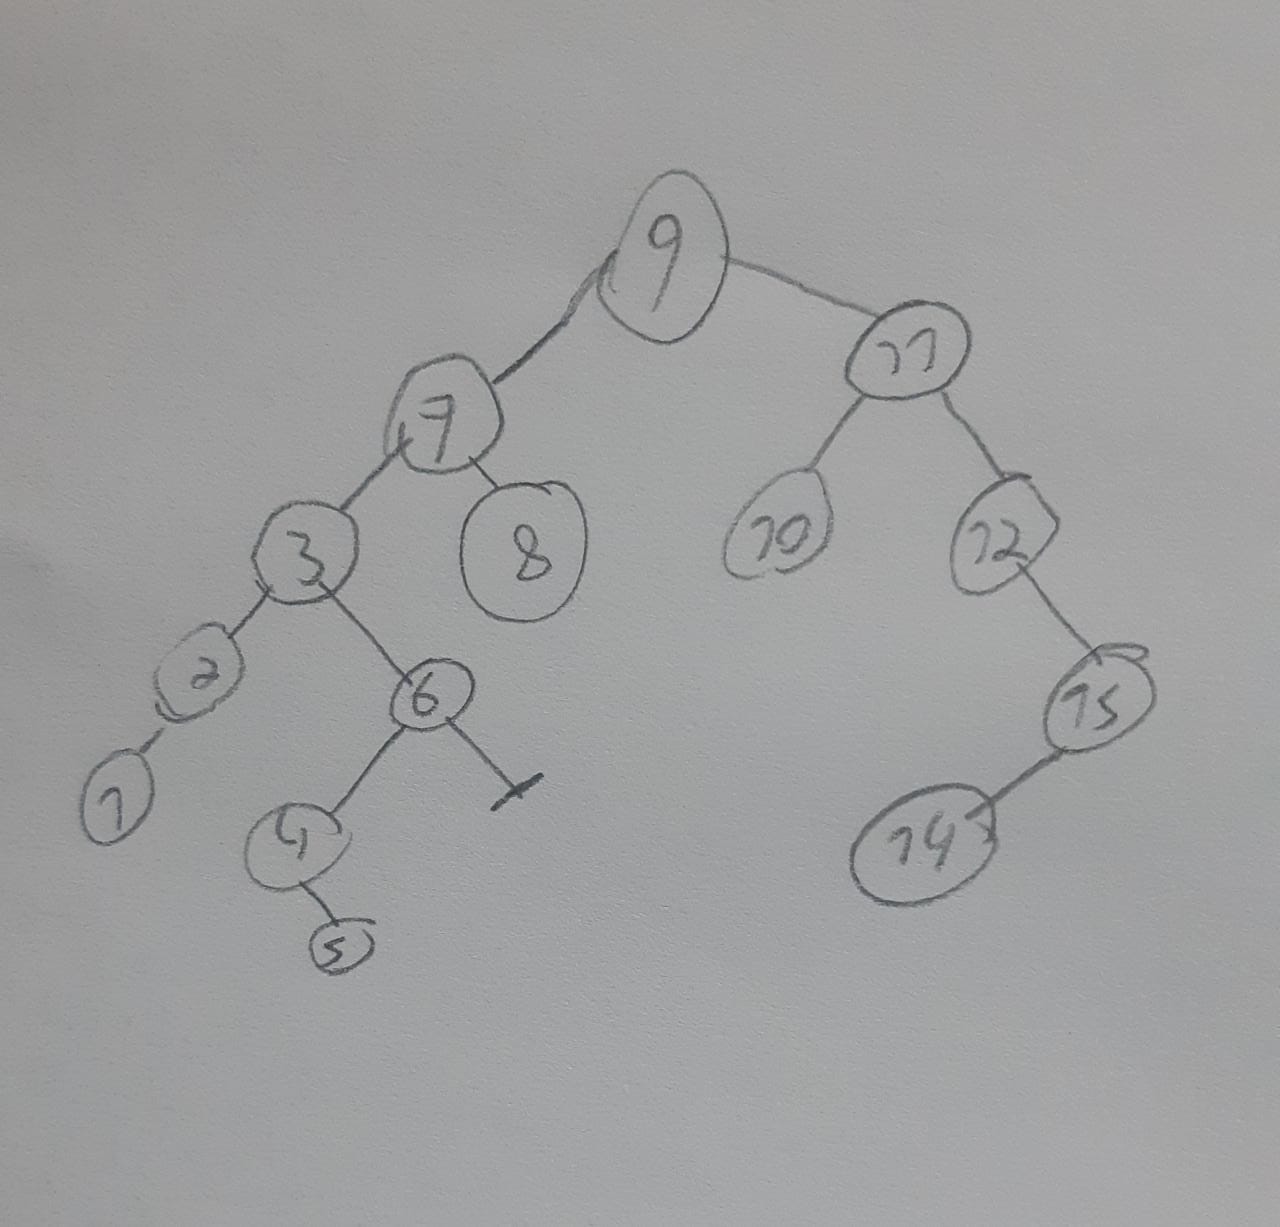 9
7 11
3 8 10 12
2 6 15
1 4 14
5